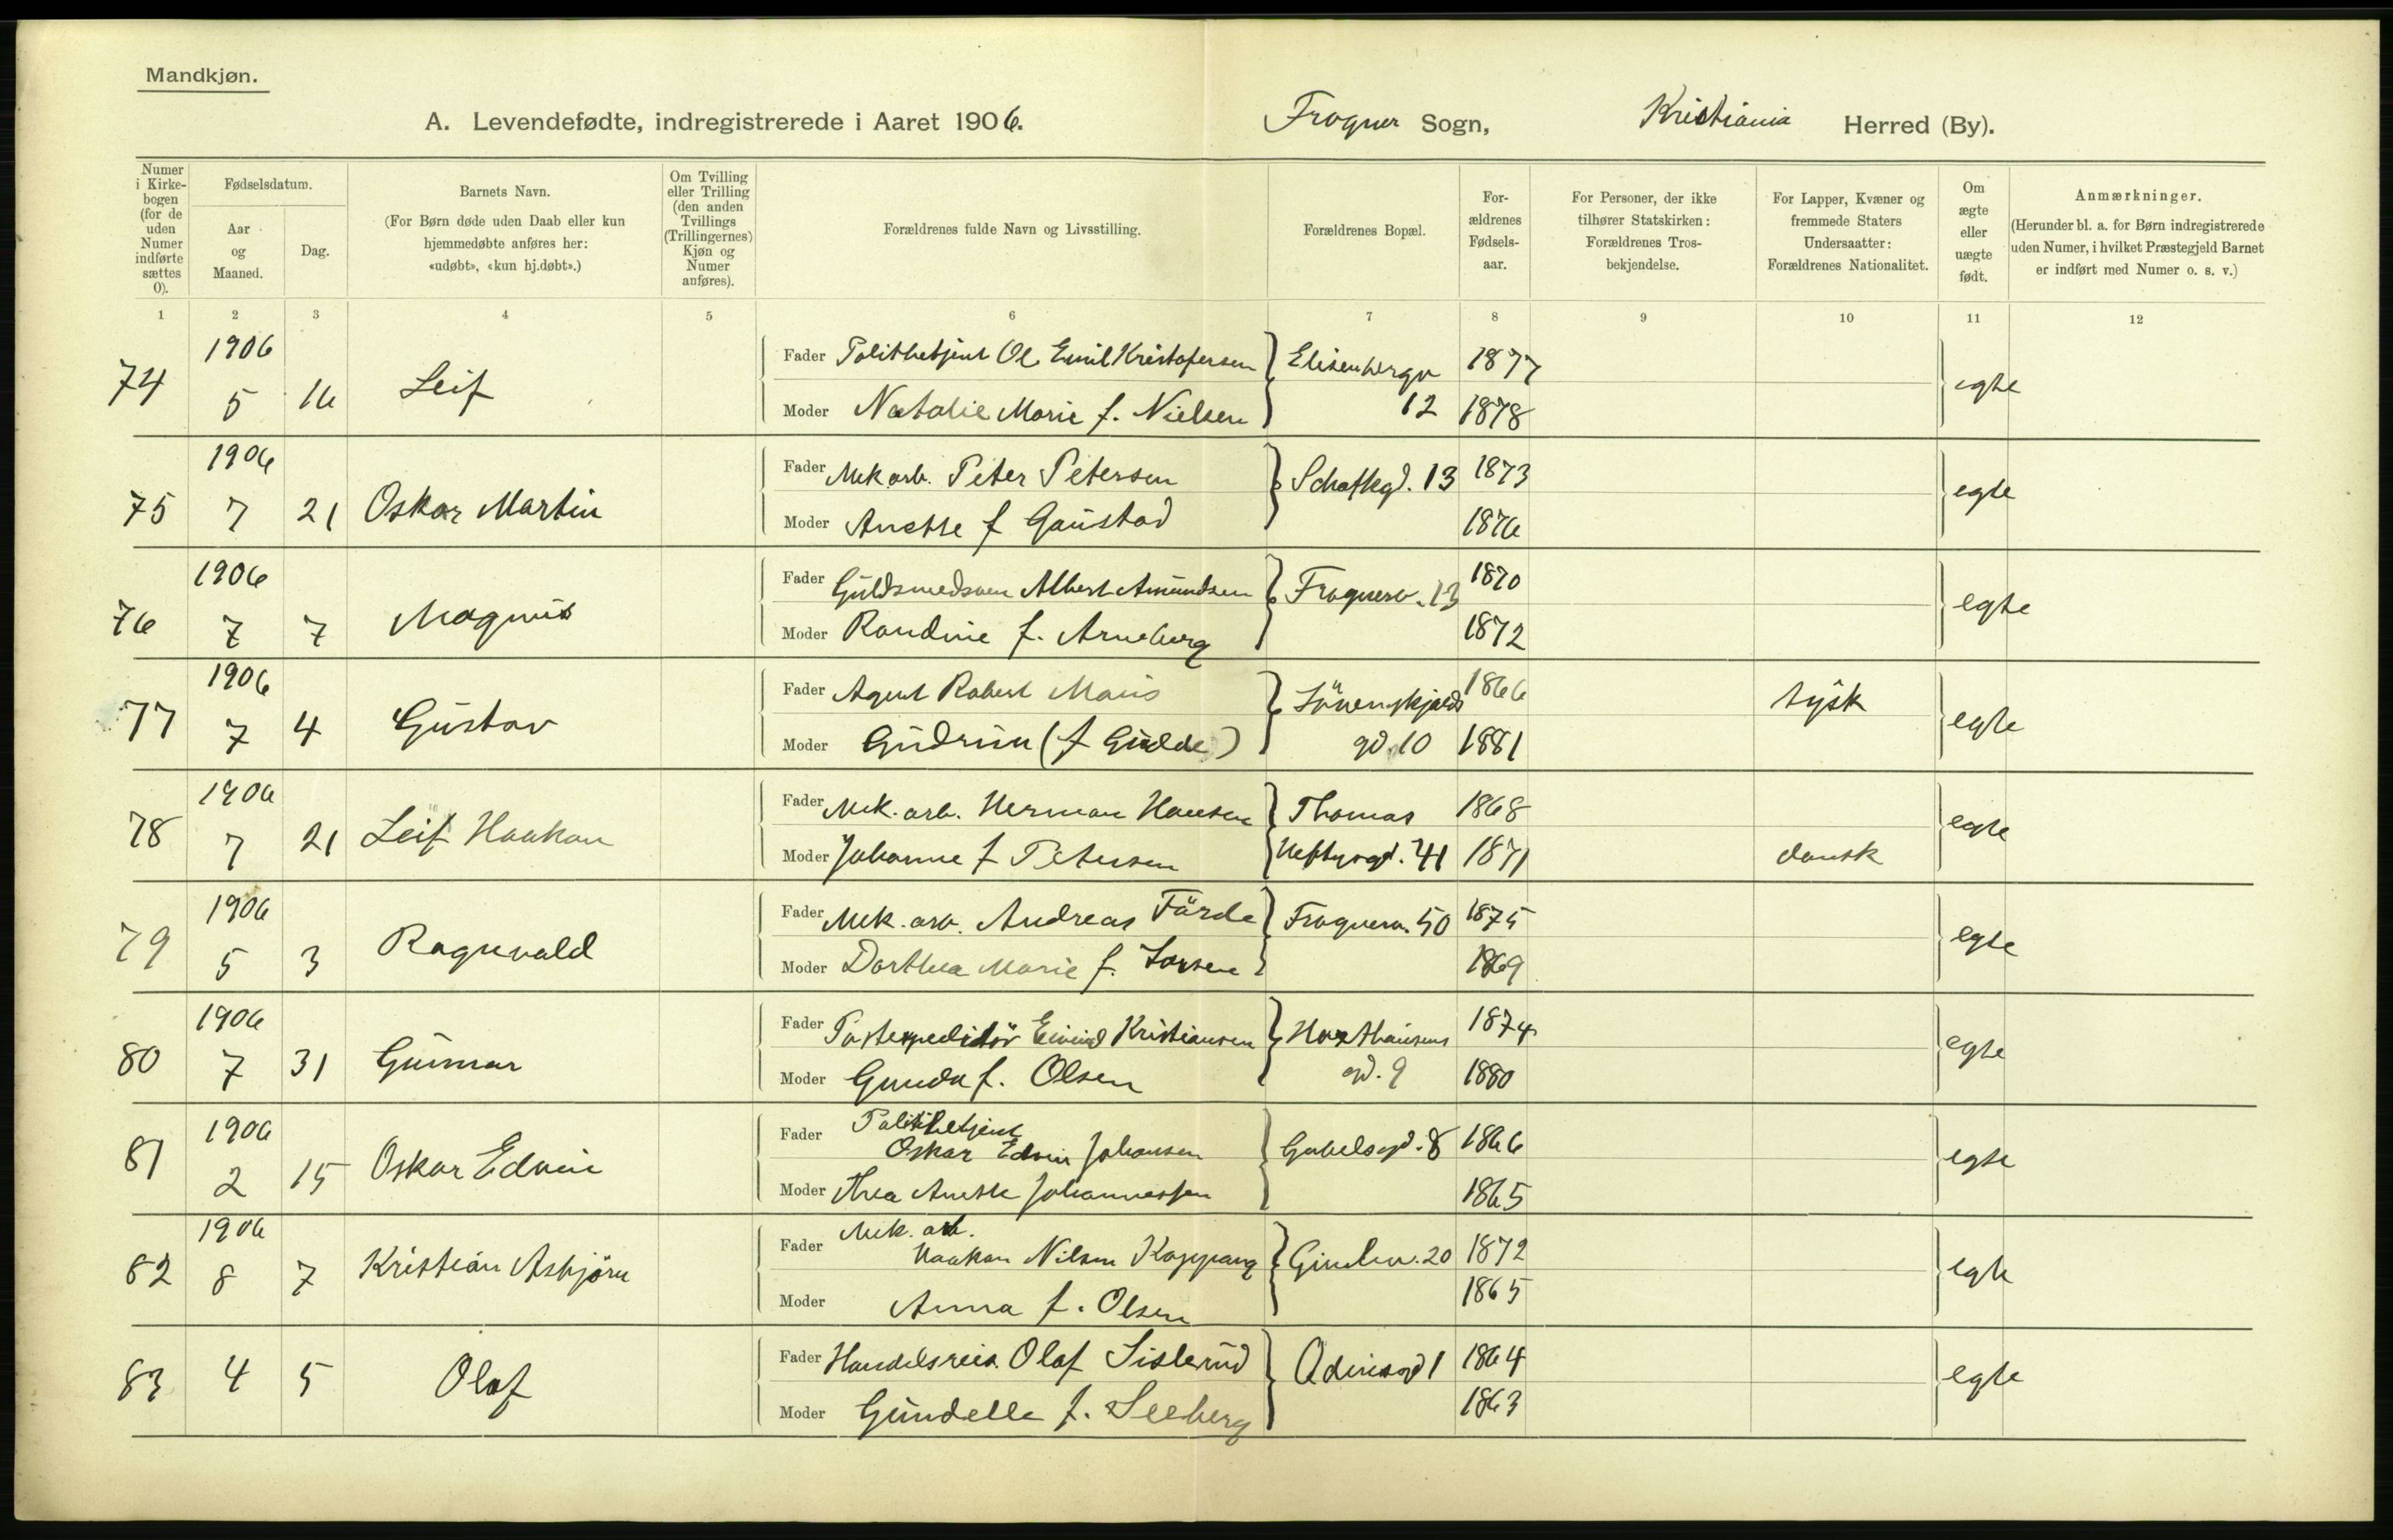 Mandkjøn.
A. Levendefødte, indregistrerede i Aaret 1906.
Frogner Sogn,
Kristiania Herred (By).
Numer i Kirkebogen (for de uden Numer indførte sættes 0).
Fødselsdatum.
Aar og Maaned.
Dag.
Barnets Navn.
(For Børn døde uden Daab eller kun hjemmedøbte anføres her: «udøbt», «kun hj.døbt».)
Om Tvilling eller Trilling (den anden Tvillings (Trillingernes) Kjøn og Numer anføres).
Forældrenes fulde Navn og Livsstilling.
Forældrenes Bopæl.
Forældrenes Fødselsaar.
For Personer, der ikke tilhører Statskirken: Forældrenes Trosbekjendelse.
For Lapper, Kvæner og fremmede Staters Undersaatter: Forældrenes Nationalitet.
Om ægte eller uægte født.
Anmærkninger.
(Herunder bl. a. for Børn indregistrerede uden Numer, i hvilket Præstegjeld Barnet er indført med Numer o. s. v.)
1 2 3 4 5 6 7 8 9 10 11 12
74 1906 5 16 Leif
Fader Politibetjent Ol Emil Kristofersen Elisenbergv 1877 egte
Moder Natalie Marie f. Nielsen 12 1878
75 1906 7 21 Oskar Martin
Fader Mek arb. Peter Petersen Schaftgd. 13 1873 egte
Moder Anette f Gaustad 1876
76 1906 7 7 Magnus
Fader Guldsmedsven Albert Amundsen Frognerv. 13 1870 egte
Moder Randine f. Arneberg 1872
77 1906 7 4 Gustav
Fader Agent Robert Mans Lövenskjolds 1866 tysk egte
Moder Gudrun (f Gudde) gd. 10 1881
78 1906 7 21 Leif Haakon
Fader Mek. arb. Herman Hansen Thomas 1868 egte
Moder Johanne f Petersen Heftyesgd. 41 1871 dansk
79 1906 5 3 Ragnvald
Fader Mek. arb. Andreas Förde Frognerv. 50 1875 egte
Moder Dorthea Marie f. Larsen 1869
80 1906 7 31 Gunnar
Fader Postexpeditör Eivind Kristiansen Haxthausens 1874 egte
Moder Gunda f. Olsen gd. 9 1880
81 1906 2 15 Oskar Edvin
Fader Politibetjent
Oskar Edvin Johansen Gabelsgd. 8 1866 egte
Moder Thea Anette Johannessen 1865
82 1906 8 7 Kristian Asbjörn
Fader Mek. arb.
Haakon Nilsen Koppang Gimlev. 20 1872 egte
Moder Anna f. Olsen 1865
83 4 5 Olaf
Fader Handelsreis. Olaf Sislerud Odinsgd 1 1864 egte
Moder Gundelle f. Seeberg 1863